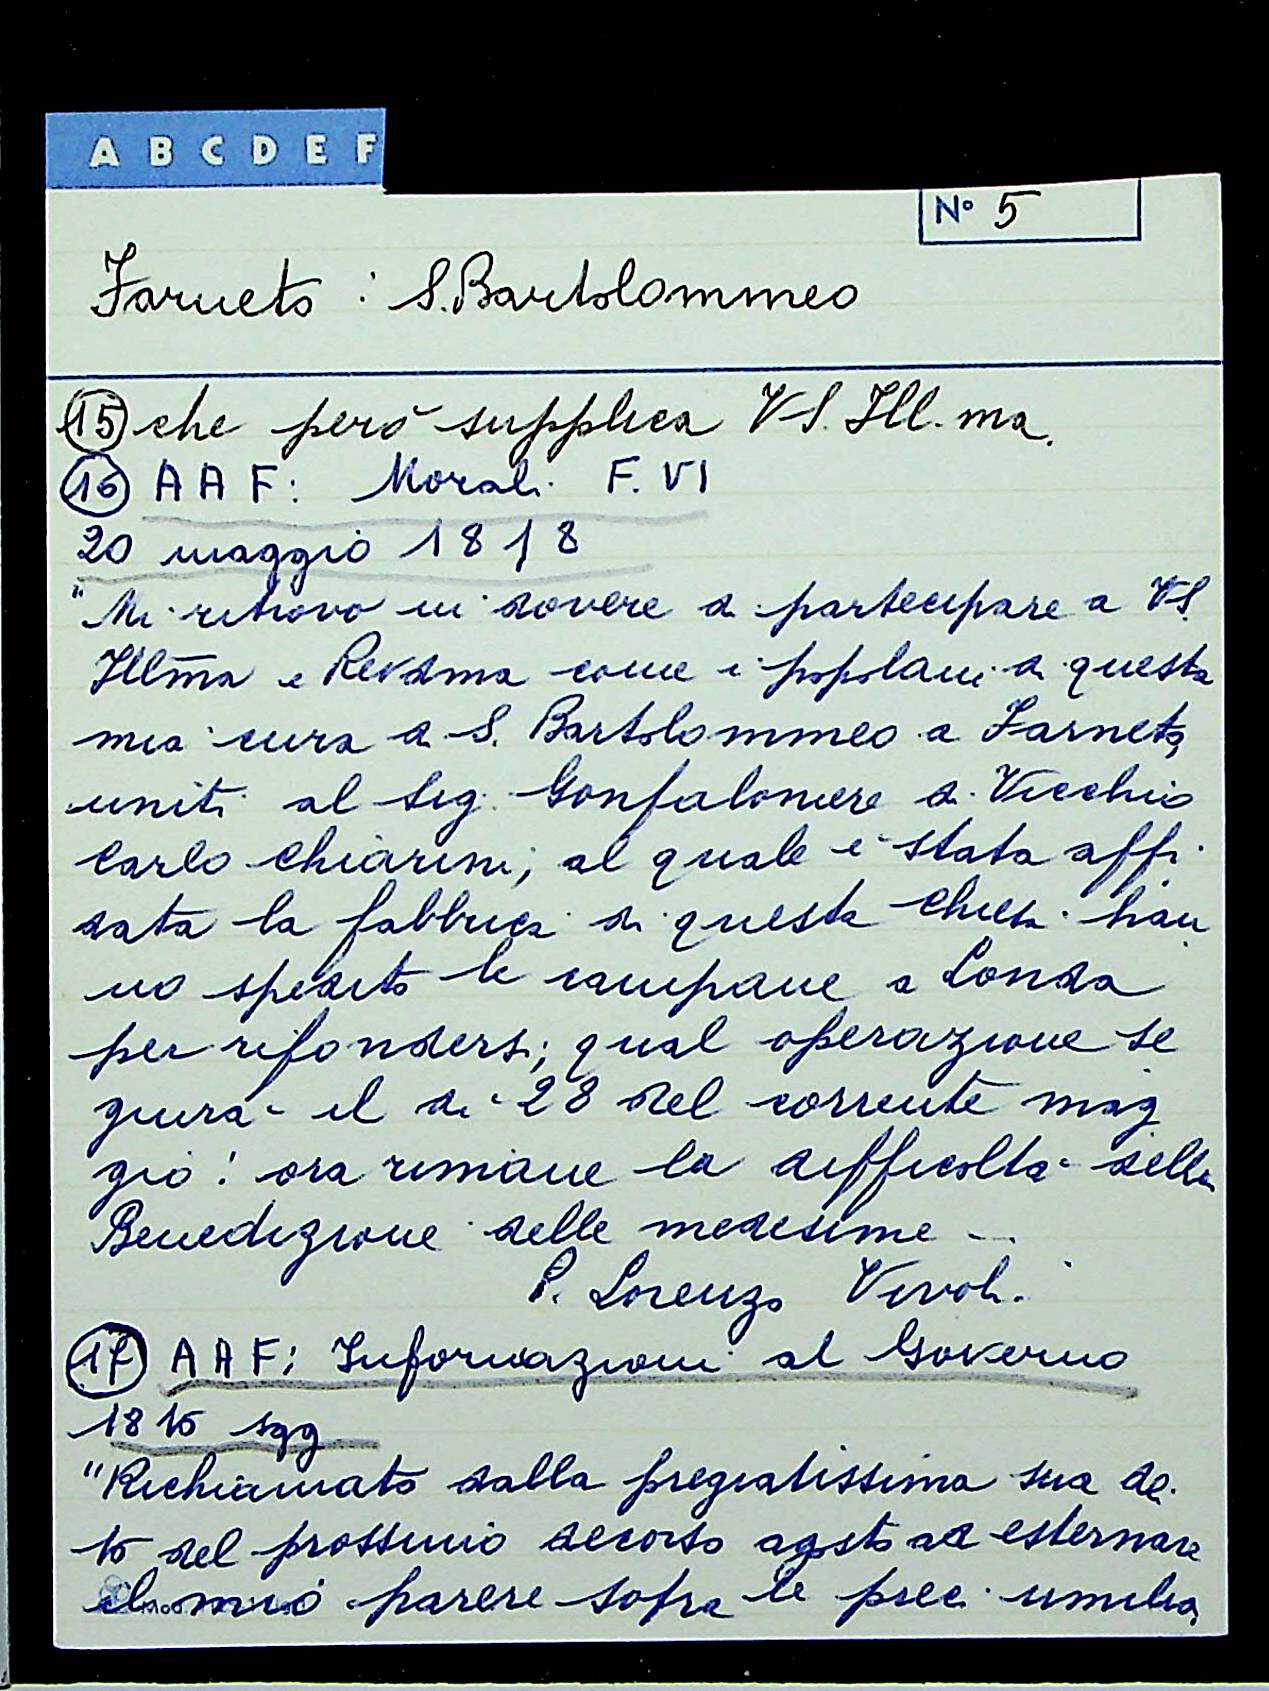 A B C D E F
N° 5
Farneto : S. Bartolommeo
15 che però supplica VS. Ill.ma.
16 A A F: Morali F. VI
20 maggio 1818
"Mi ritrovo in dovere di partecipare a VS.
Illma e Revdma come i popolani di questa
mia cura di S. Bartolommeo a Farneto,
uniti al Sig. Gonfaloniere di Vicchio
Carlo Chiarini, al quale è stata affi-
data la fabbrica di questa Chiesa han
no spedito le campane a Londa
per rifondersi; qual operazione se
guirà il dì 28 del corrente mag
gio! ora rimane la difficoltà della
Benedizione delle medesime ...
P. Lorenzo Vivoli.
17 A A F: Informazioni al Governo
1815 sgg
"Richiamato dalla pregiatissima sua de'
15 del prossimo decorso agosto ad esternare
il mio parere sopra le preci umilia